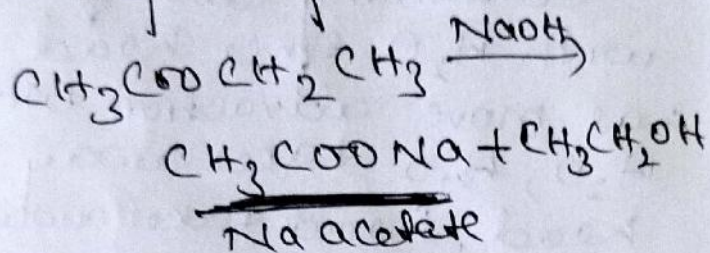 CH3COOCH2CH3 NaOH
CH3COONa + CH3CH2OH
Na acetate